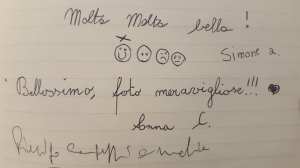 Molto Molto bella !
Simone a.
Bellossimo, foto meravigliose!!!
Anna C.